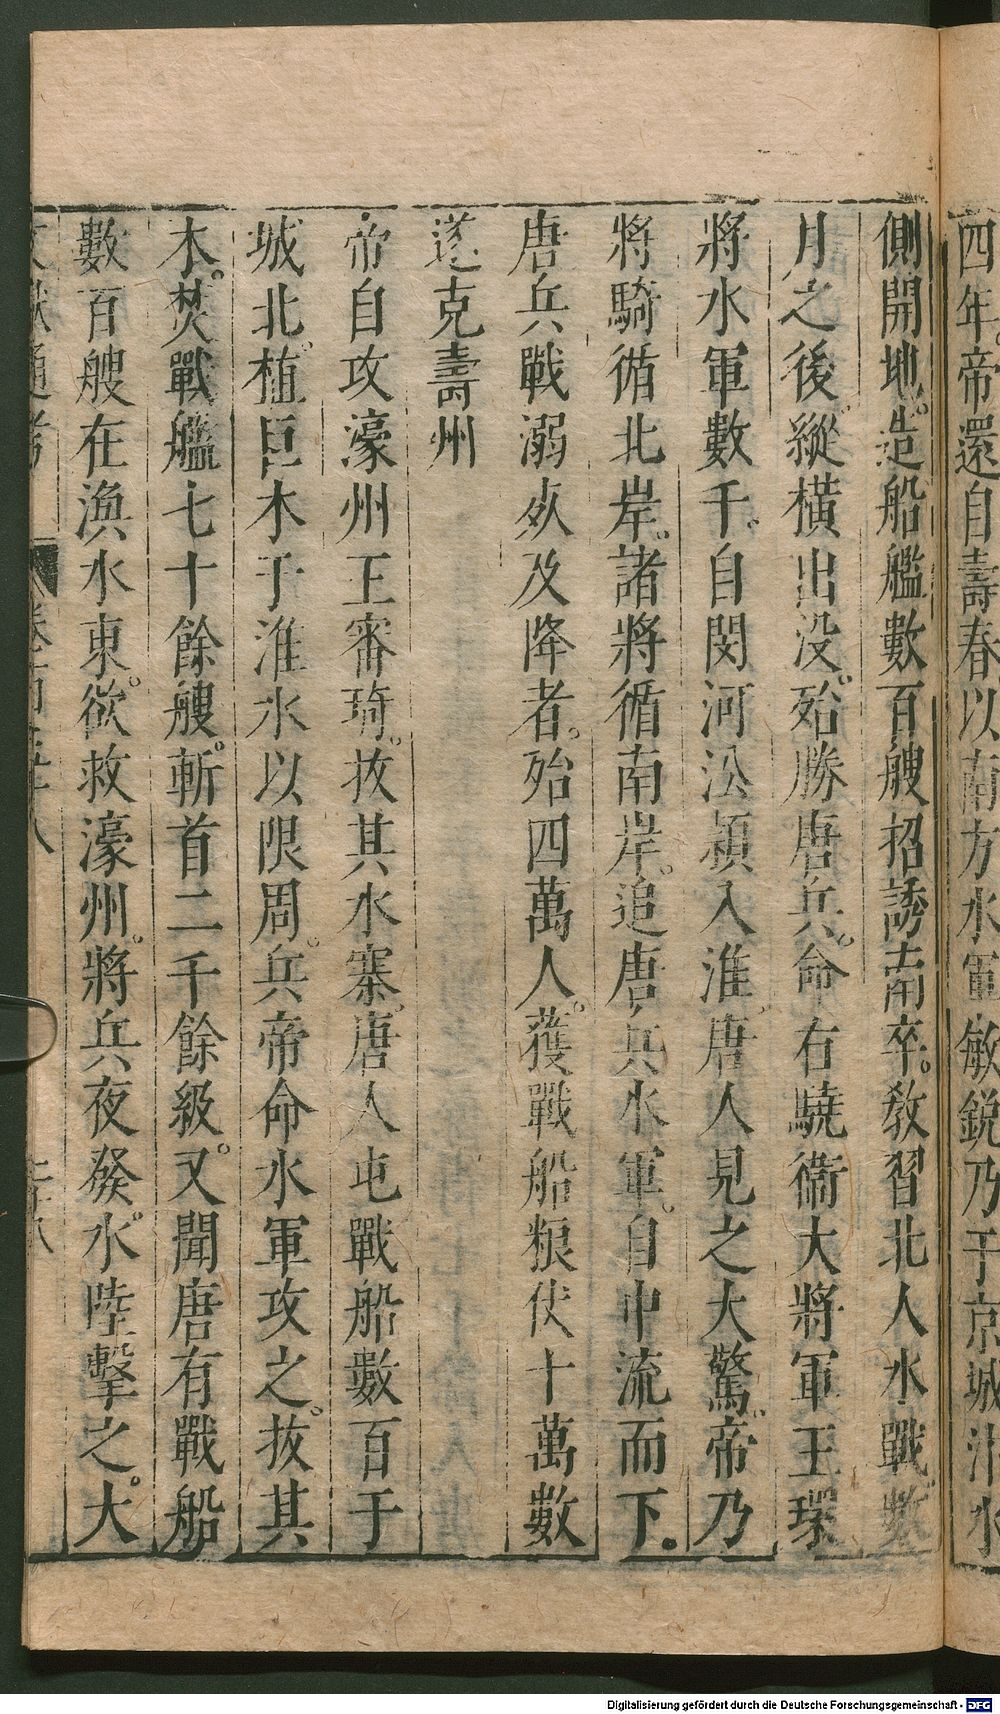 四年。帝還自壽春以南方水軍敏銳乃于京城汴水
側開地。造船艦數百艘招誘南卒。敎習北人水戰。數
月之後。縱橫出没。殆勝唐兵。命右驍衞大將軍王環
將水軍數千。自閔河沿潁入淮。唐人見之大驚。帝乃
將騎循北岸。諸將循南岸。追唐兵水軍。自中流而下。
唐兵戰溺死及降者。殆四萬人。獲戰船粮仗十萬數
遂克壽州
帝自攻濠州王審琦。拔其水寨。唐人屯戰船數百于
城北。植巨木于淮水以限周。兵帝命水軍攻之。拔其
木。焚戰艦七十餘艘。斬首二千餘級。又聞唐有戰船
數百艘在渙水東。欲救濠州。將兵夜發。水陸擊之。大
文獻通考 卷一百五十八 二十八
Digitalisierung gefördert durch die Deutsche Forschungsgemeinschaft - DFG